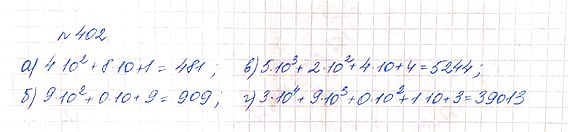 № 402.
а) 4·10² + 8·10 + 1 = 481; в) 5·10³ + 2·10² + 4·10 + 4 = 5244;
б) 9·10² + 0·10 + 9 = 909; г) 3·10⁴ + 9·10³ + 0·10² + 1·10 + 3 = 39013